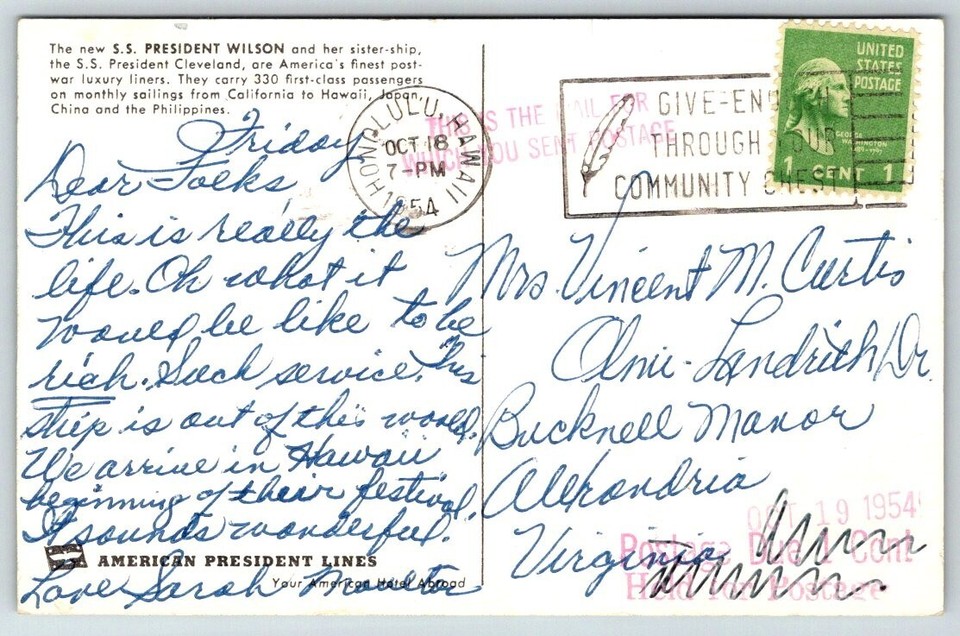 The new S.S. PRESIDENT WILSON and her sister-ship,
the S.S. President Cleveland, are America's finest post-
war luxury liners. They carry 330 first-class passengers
on monthly sailings from California to Hawaii, Japan,
China and the Philippines.
Friday
Dear Folks
This is really the
life. Oh what it
would be like to be
rich. Such service. This
ship is out of this world.
We arrive in Hawaii
beginning of their festival.
It sounds wonderful.
AMERICAN PRESIDENT LINES
Your American Hotel Abroad
Love Sarah
HONOLULU, HAWAII
OCT 18
7-PM
1954
THIS IS THE MAIL FOR
WHICH YOU SENT POSTAGE
GIVE-ENOUGH
THROUGH YOUR
COMMUNITY CHEST
UNITED
STATES
POSTAGE
GEORGE
WASHINGTON
1 CENT 1
Mrs. Vincent M. Curtis
Drive
Bucknell Manor
Alexandria
Virginia
OCT 19 1954
Postage Due 1 Cent
Held for Postage